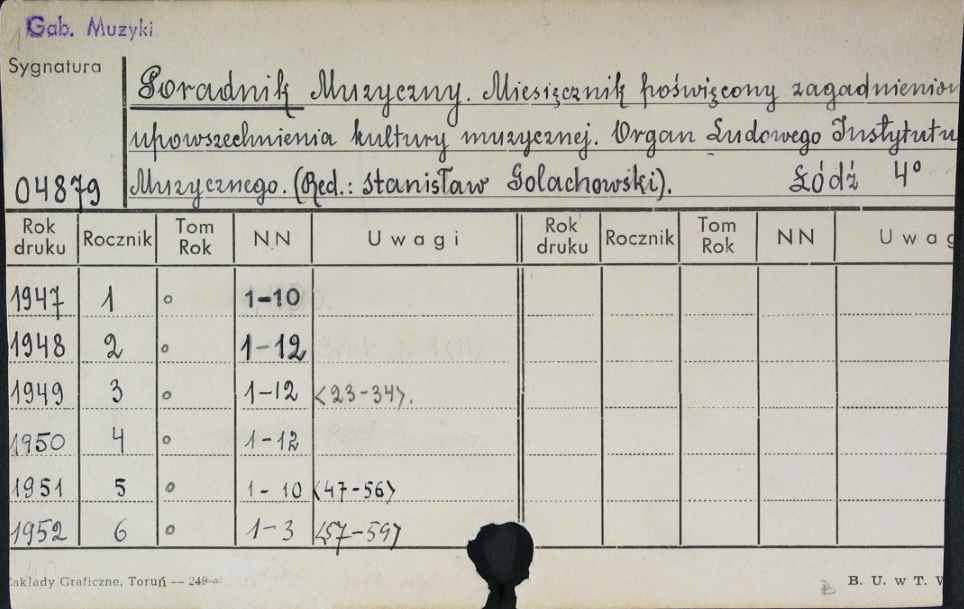 Gab. Muzyki
Sygnatura
Poradnik Muzyczny. Miesięcznik poświęcony zagadnieniom
upowszechnienia kultury muzycznej. Organ Ludowego Instytutu
04879 Muzycznego. (Red.: Stanisław Golachowski). Łódź 4°
Rok druku Rocznik Tom Rok NN Uwagi Rok druku Rocznik Tom Rok NN Uwag
1947 1 ° 1-10
1948 2 ° 1-12
1949 3 ° 1-12 <23-34>.
1950 4 ° 1-12
1951 5 ° 1-10 <47-56>
1952 6 ° 1-3 <57-59>
Zakłady Graficzne, Toruń — 249 B. U. w T. W